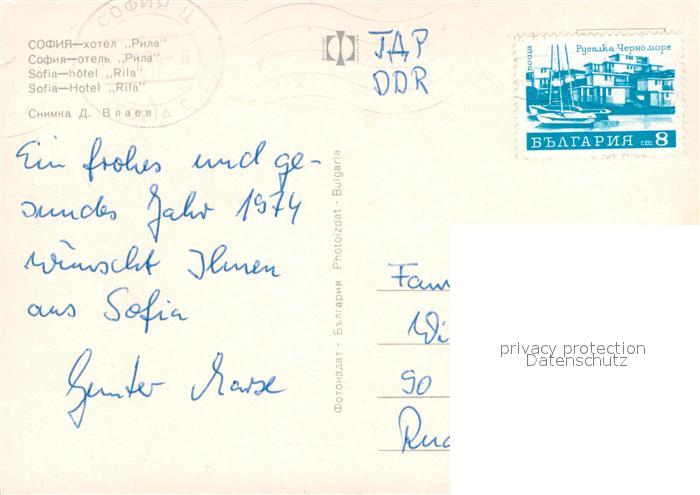 СОФИЯ Ц
СОФИЯ—хотел „Рила"
София—отель „Рила"
Sofia—hôtel „Rila"
Sofia—Hotel „Rila"
Снимка Д. Влаев
ГДР
DDR
поща
Русалка Черно море
БЪЛГАРИЯ ст 8
Ein frohes und ge-
sundes Jahr 1974
wünscht Ihnen
aus Sofia
Фотоиздат - България Photoizdat - Bulgaria
Fam
Wi
90
privacy protection
Datenschutz